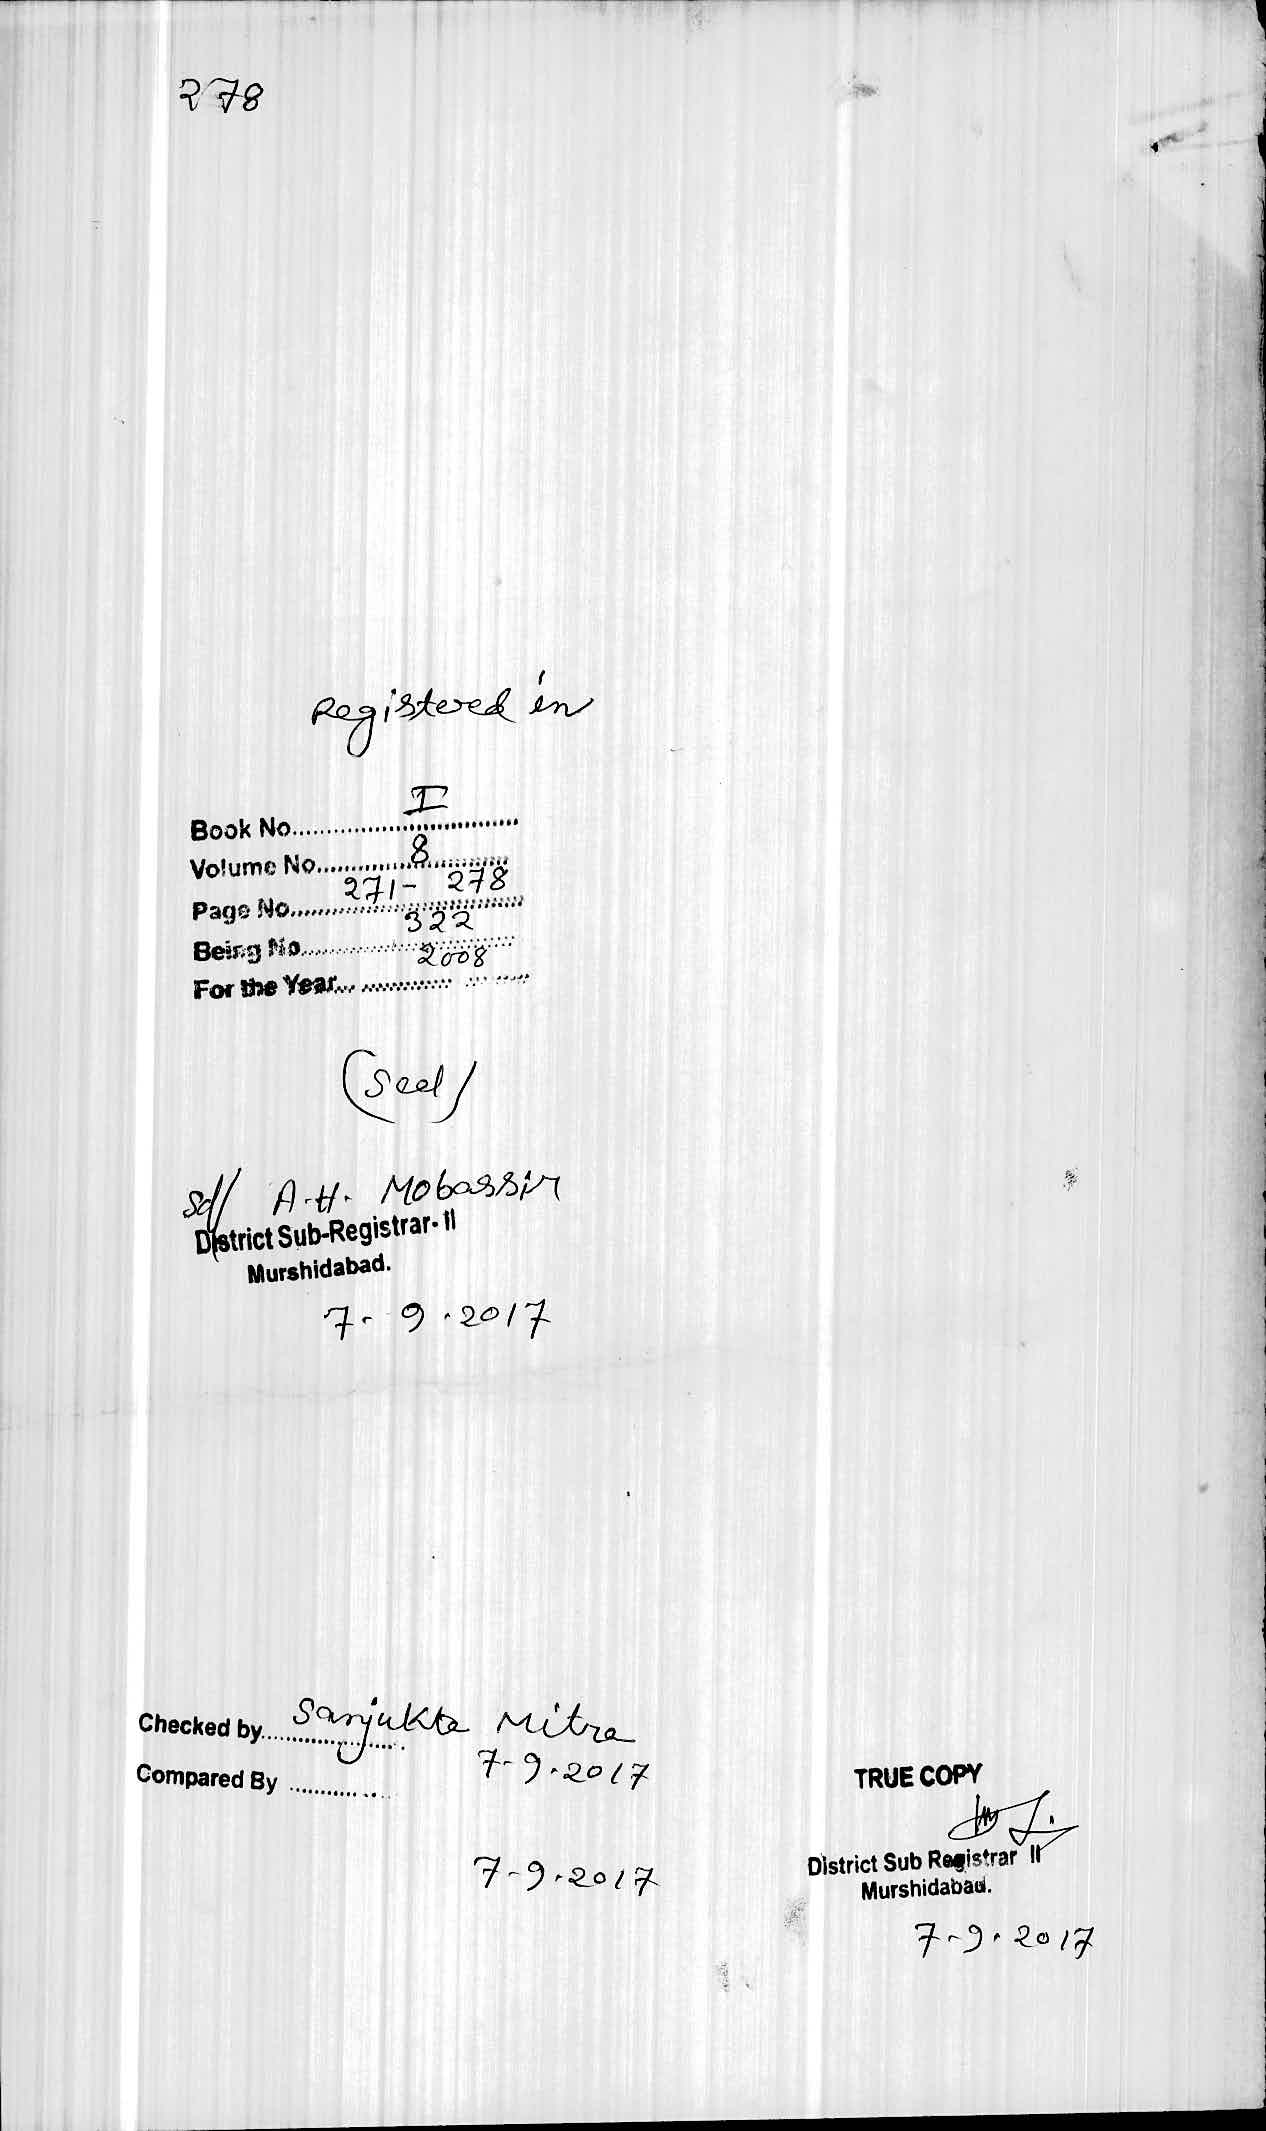 278
Registered in
Book No. I
Volume No. 8
Page No. 271 - 278
Being No. 322
For the Year 2008
(Seal)
Sd/ A.H. Mobassir
District Sub-Registrar-II
Murshidabad.
7-9-2017
Checked by Sanjukta Mitra
7-9-2017
Compared By
7-9-2017
TRUE COPY
District Sub Registrar II
Murshidabad.
7-9-2017